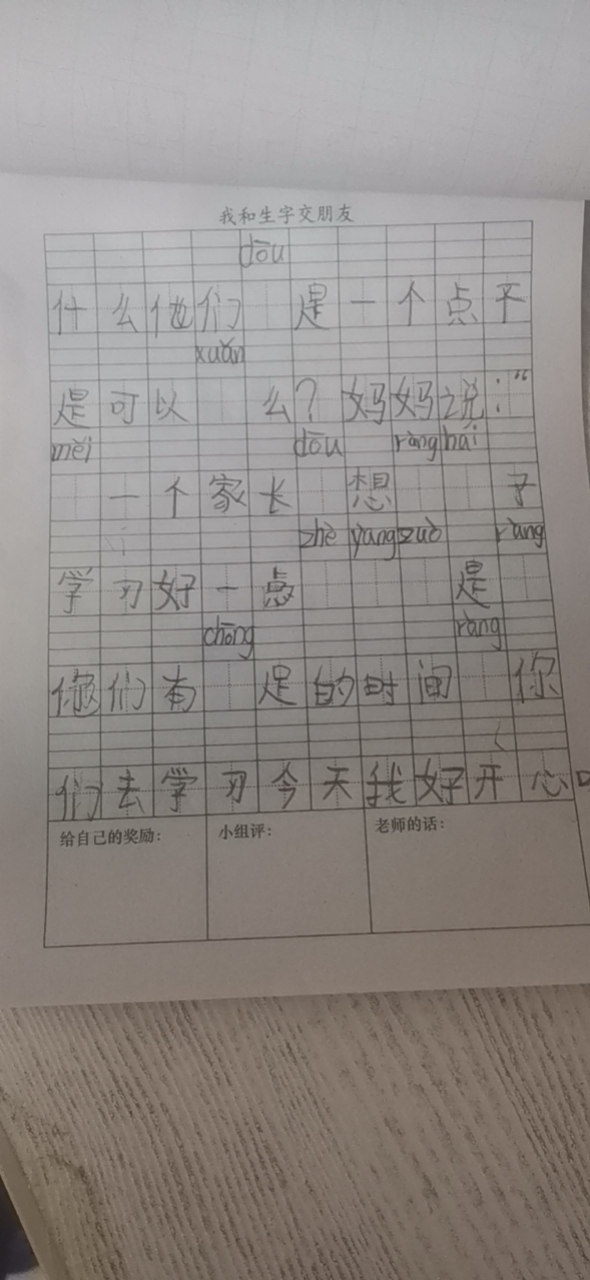 我和生字交朋友
dōu
什么他们 是一个点不
xuǎn
是可以 么？妈妈说：“
měi dōu ràng hái
一个家长 想 子
zhè yàng zuò ràng
学习好一点 是
chōng ràng
你们有 足的时间 你
们去学习今天我好开心口
给自己的奖励： 小组评： 老师的话：